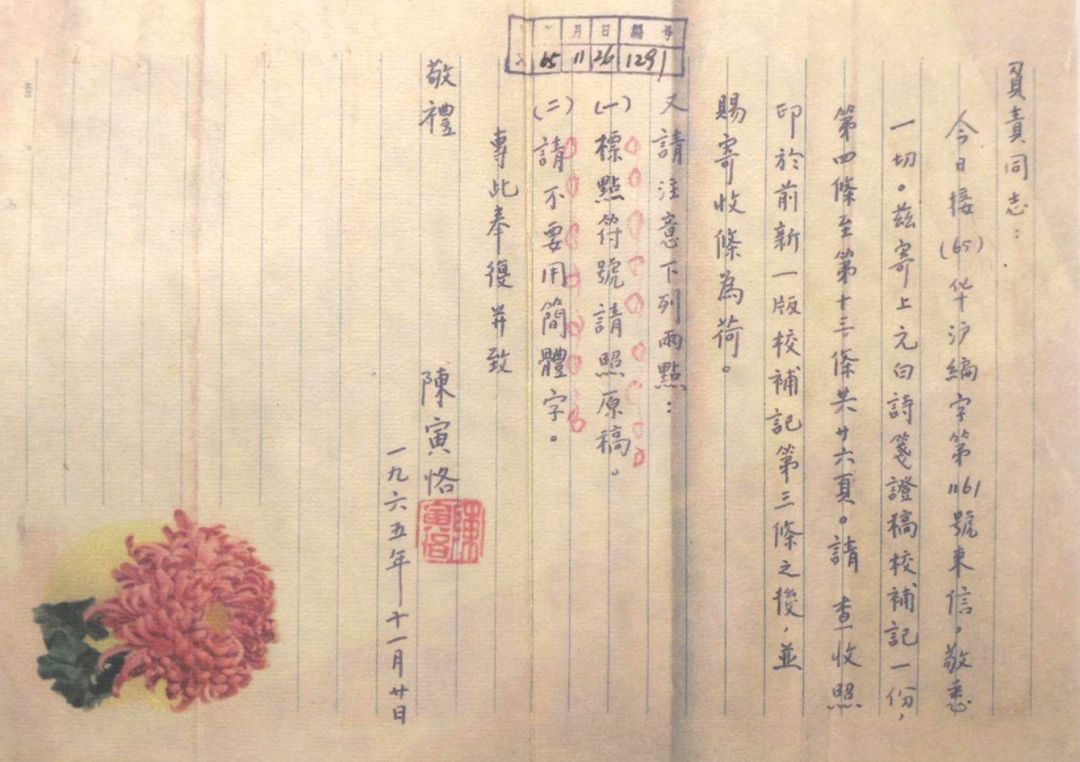 負責同志：
今日接(65)华沪編字第1161號来信，敬悉
一切。兹寄上元白詩箋證稿校補記一份，
第四條至第十三條共廿六頁。請 查收照
印於前新一版校補記第三條之後，並
賜寄收條為荷。
又請注意下列兩點：
(一)標點符號請照原稿。
(二)請不要用簡體字。
專此奉復并致
敬禮
陳寅恪
陳寅恪
一九六五年十一月廿日
月 日 編 号
65 11 26 1291